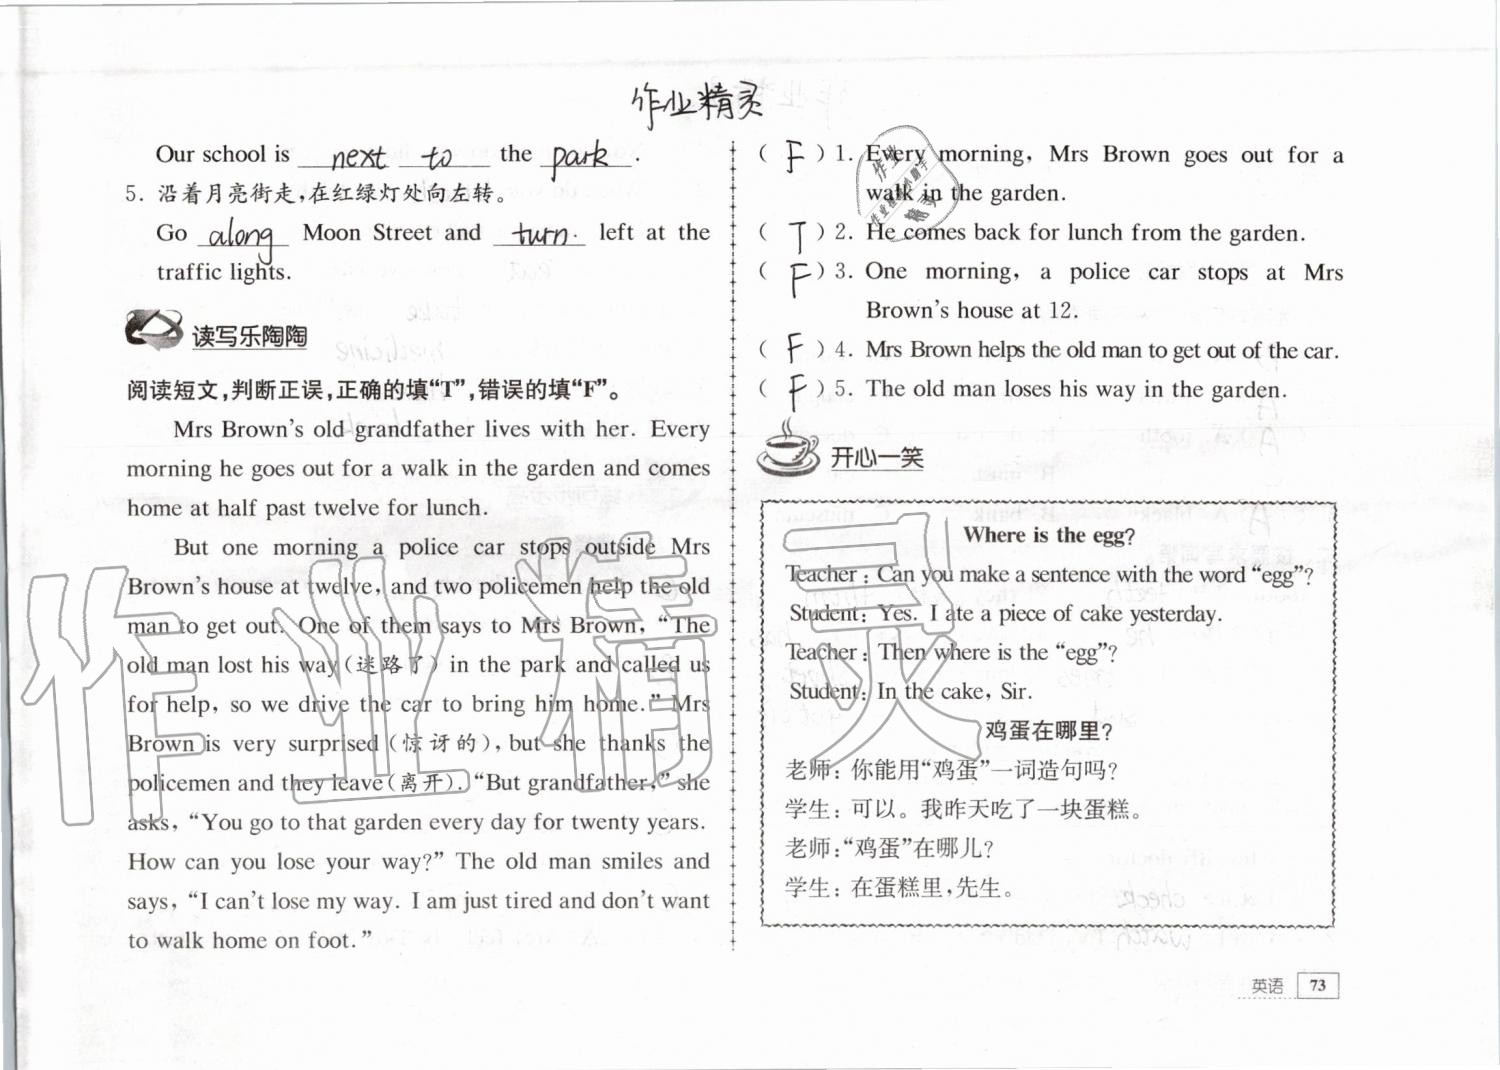 作业精灵
Our school is next to the park.
5. 沿着月亮街走,在红绿灯处向左转。
Go along Moon Street and turn left at the
traffic lights.
读写乐陶陶
阅读短文,判断正误,正确的填“T”,错误的填“F”。
Mrs Brown's old grandfather lives with her. Every
morning he goes out for a walk in the garden and comes
home at half past twelve for lunch.
But one morning a police car stops outside Mrs
Brown's house at twelve, and two policemen help the old
man to get out. One of them says to Mrs Brown, “The
old man lost his way(迷路了) in the park and called us
for help, so we drive the car to bring him home.” Mrs
Brown is very surprised(惊讶的), but she thanks the
policemen and they leave(离开). “But grandfather,” she
asks, “You go to that garden every day for twenty years.
How can you lose your way?” The old man smiles and
says, “I can't lose my way. I am just tired and don't want
to walk home on foot.”
( F ) 1. Every morning, Mrs Brown goes out for a
walk in the garden.
( T ) 2. He comes back for lunch from the garden.
( F ) 3. One morning, a police car stops at Mrs
Brown's house at 12.
( F ) 4. Mrs Brown helps the old man to get out of the car.
( F ) 5. The old man loses his way in the garden.
开心一笑
Where is the egg?
Teacher: Can you make a sentence with the word “egg”?
Student: Yes. I ate a piece of cake yesterday.
Teacher: Then where is the “egg”?
Student: In the cake, Sir.
鸡蛋在哪里?
老师:你能用“鸡蛋”一词造句吗?
学生:可以。我昨天吃了一块蛋糕。
老师:“鸡蛋”在哪儿?
学生:在蛋糕里,先生。
英语 73
作业精灵